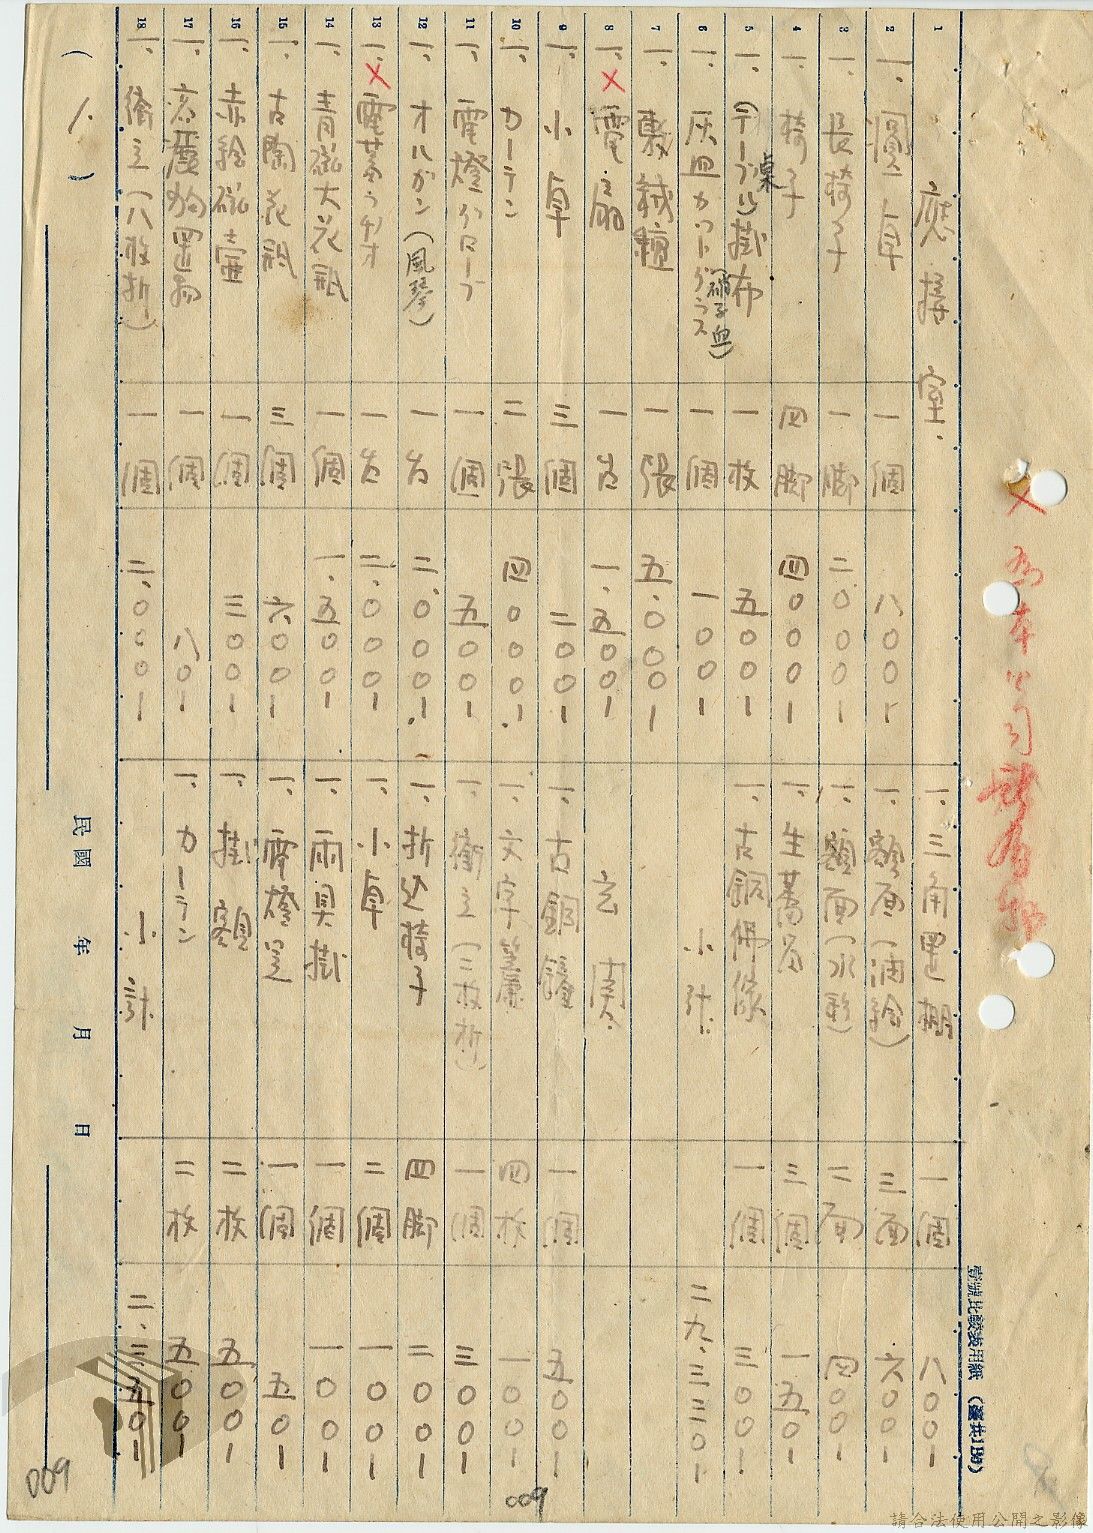 1
應接室.
2
一、圓卓 一個 八〇〇1
3
一、長椅子 一脚 二.〇〇〇1
4
一、椅子 四脚 四〇〇〇1
5
一、(テーブル)掛布 一枚 五〇〇1
桌
6
一、灰皿カットグラス 一個 一〇〇1
(硝子皿)
7
一、敷絨氈 一張 五.〇〇〇1
8
一、×電扇 一台 一.五〇〇1
9
一、小卓 三個 二〇〇1
10
一、カーテン 二張 四〇〇〇1.
11
一、電燈グローブ 一個 五〇〇1
12
一、オルガン(風琴) 一台 二.〇〇〇1.
13
一、×電蓄ラヂオ 一台 二.〇〇〇1
14
一、青磁大花瓶 一個 一.五〇〇1
15
一、古陶花瓶 三個 六〇〇1
16
一、赤絵磁壷 一個 三〇〇1
17
一、置物 一個 八〇1
18
一、衝立(八枚折) 一個 二.〇〇〇1
一、三角置棚 一個 八〇〇1
一、額面(油絵) 三面 六〇〇1
一、額面(水彩) 二面 四〇〇1
一、生蕃 三個 一五〇1
一、古銅佛像 一個 三〇〇1
小計. 二九.三三〇1
玄関.
一、古銅鐘 一個 五〇〇1
一、文字簾 四枚 一〇〇1
一、衝立(三枚折) 一個 三〇〇1
一、折込椅子 四脚 二〇〇1
一、小卓 二個 一〇〇1
一、雨具掛 一個 一〇〇1
一、電燈 一個 五〇1
一、掛額 二枚 五〇〇1
一、カーテン 二枚 五〇〇1
小計. 二.三五〇1
× 為本公司
壹號比較表用紙 (臺共1B5)
民國 年 月 日
(1.)
009
009
請合法使用公開之影像